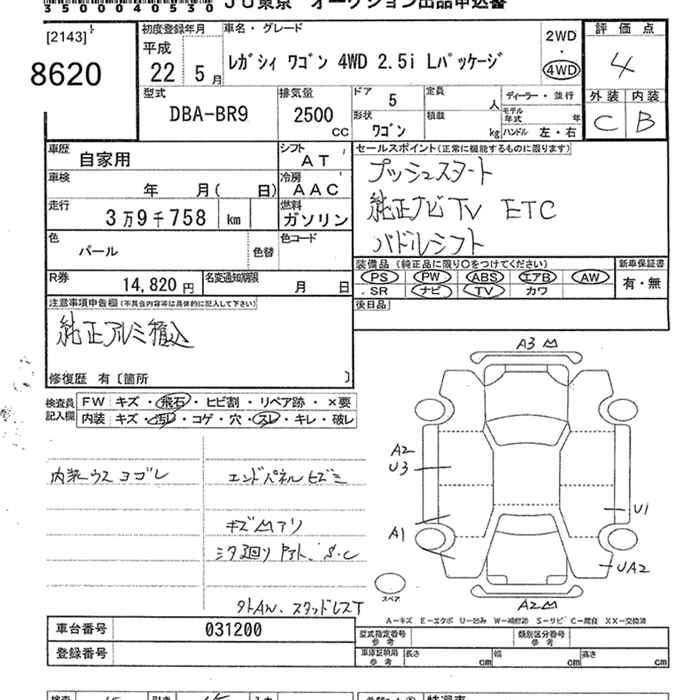 35000040530 JU東京 オークション出品申込書
[2143]
8620
初度登録年月
平成
22年 5月
車名・グレード
レガシィ ワゴン 4WD 2.5i Lパッケージ
2WD
・
4WD
評価点
4
外装 内装
C B
型式
DBA-BR9
排気量
2500
CC
ドア
5
形状
ワゴン
定員
人
積載
kg
ディーラー・並行
モデル年式 年
ハンドル 左・右
車歴
自家用
シフト
AT
車検
年 月( 日)
冷房
AAC
走行
3万9千758 km
燃料
ガソリン
色
パール
色替
色コード
R券
14,820円
名変通知期限
月 日
セールスポイント(正常に機能するものに限ります)
プッシュスタート
純正ナビTV ETC
パドルシフト
装備品(純正品に限り○をつけてください)
PS PW ABS エアB AW
SR ナビ TV カワ
新車保証書
有・無
後日品
注意事項申告欄(不具合内容等は具体的に記入して下さい)
純正アルミ積込
修復歴 有〔箇所 〕
検査員
記入欄
FW キズ・飛石・ヒビ割・リペア跡・×要
内装 キズ・汚レ・コゲ・穴・スレ・キレ・破レ
内装ウスヨゴレ
エンドパネルヒズミ
キズ凹アリ
S・C
外AW、スタッドレスT
A3凹
A2
U3
A1
U1
UA2
A2凹
スペア
A−キズ E−エクボ U−凹み W−補修跡 S−サビ C−腐食 XX−交換済
車台番号
031200
登録番号
型式指定番号
参考
類別区分番号
参考
車庫証明用
参考
長さ cm 幅 cm 高さ cm